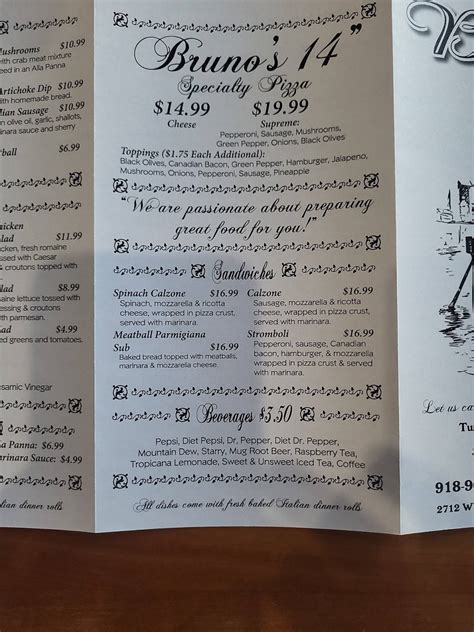 Mushrooms $10.99
with crab meat mixture
in an Alla Panna
Artichoke Dip $10.99
with homemade bread.
Sausage $10.99
olive oil, garlic, shallots,
marinara sauce and sherry
$6.99
$11.99
fresh romaine
tossed with Caesar
& croutons topped with
$8.99
romaine lettuce tossed with
& croutons
with parmesan.
$4.99
greens and tomatoes.
Vinegar
Panna: $6.99
Marinara Sauce: $4.99
Italian dinner rolls
Bruno's 14"
Specialty Pizza
$14.99 $19.99
Cheese Supreme:
Pepperoni, Sausage, Mushrooms,
Green Pepper, Onions, Black Olives
Toppings ($1.75 Each Additional):
Black Olives, Canadian Bacon, Green Pepper, Hamburger, Jalapeno,
Mushrooms, Onions, Pepperoni, Sausage, Pineapple
"We are passionate about preparing
great food for you!"
Sandwiches
Spinach Calzone $16.99
Spinach, mozzarella & ricotta
cheese, wrapped in pizza crust,
served with marinara.
Meatball Parmigiana
Sub $16.99
Baked bread topped with meatballs,
marinara & mozzarella cheese.
Calzone $16.99
Sausage, mozzarella & ricotta
cheese, wrapped in pizza crust
& served with marinara.
Stromboli $16.99
Pepperoni, sausage, Canadian
bacon, hamburger, & mozzarella
wrapped in pizza crust & served
with marinara.
Beverages $3.50
Pepsi, Diet Pepsi, Dr. Pepper, Diet Dr. Pepper,
Mountain Dew, Starry, Mug Root Beer, Raspberry Tea,
Tropicana Lemonade, Sweet & Unsweet Iced Tea, Coffee
All dishes come with fresh baked Italian dinner rolls
Let us
918-9
2712 W